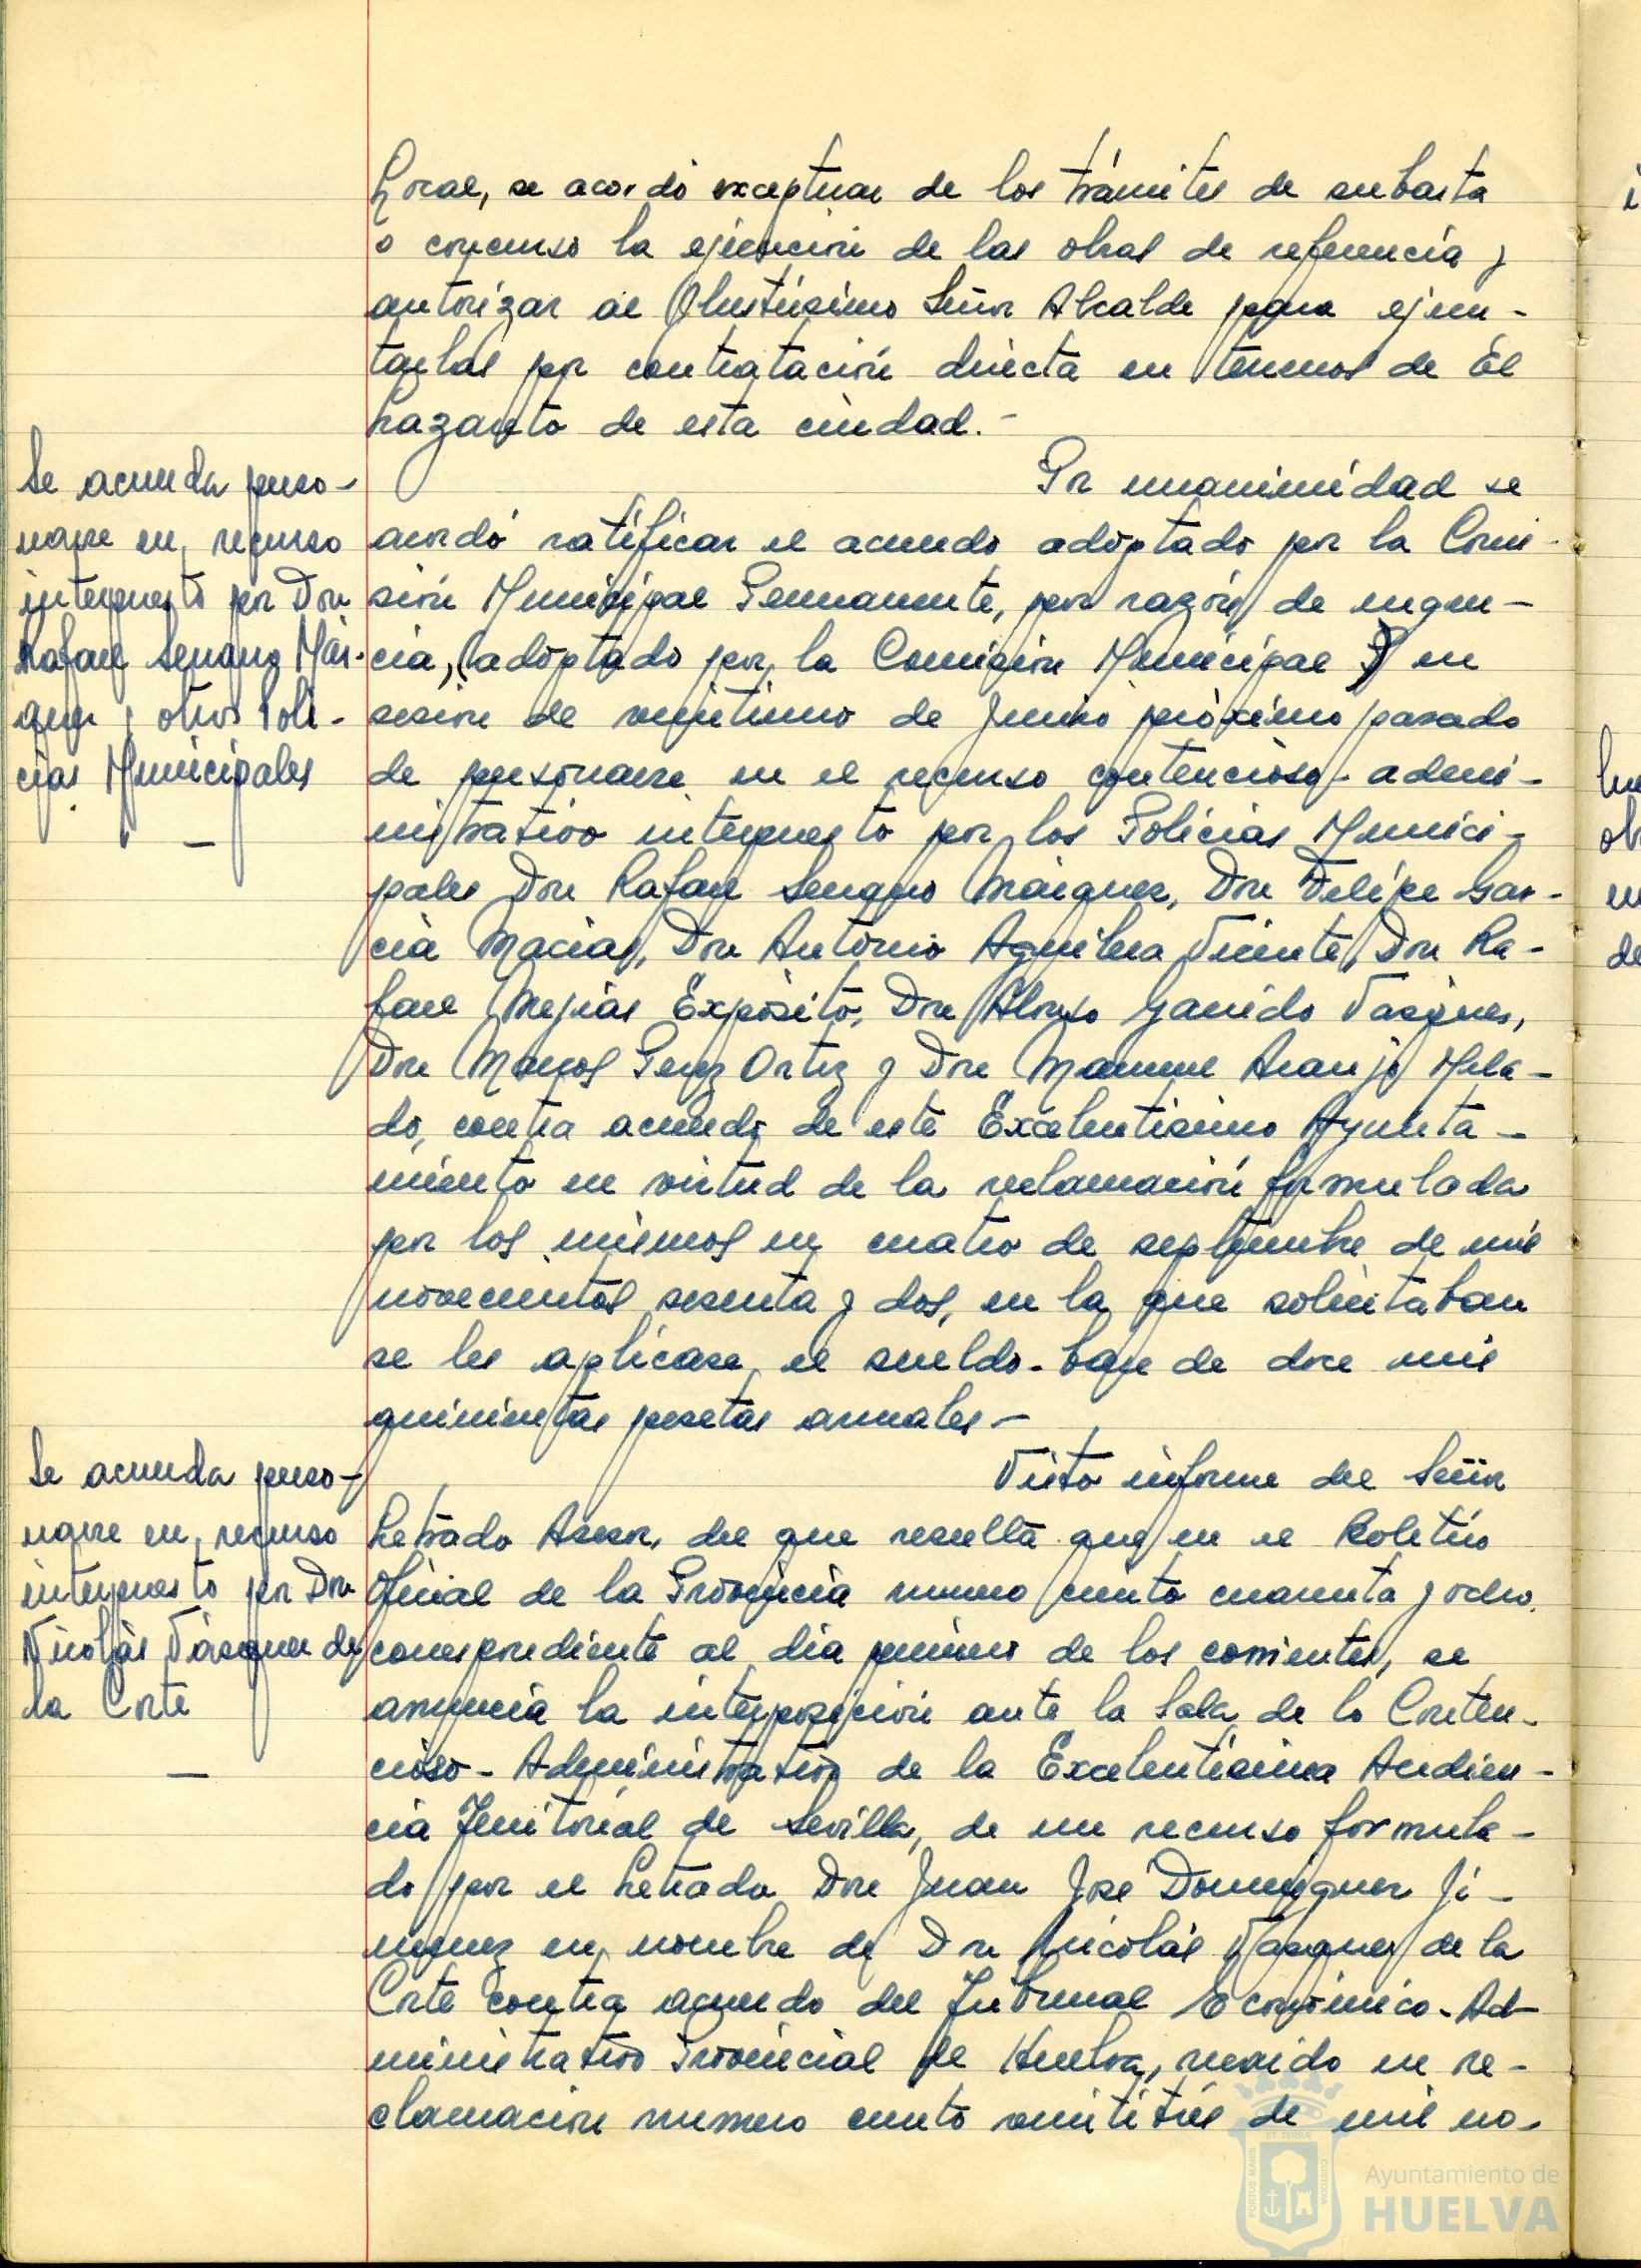 Local, se acordó exceptuar de los trámites de subasta
o concurso la ejecución de las obras de referencia y
autorizar al Ilustrísimo Señor Alcalde para ejecu-
tarlas por contratación directa en terrenos de El
Lazareto de esta ciudad.-
Se acuerda perso-
narse en recurso
interpuesto por Don
Rafael Serrano Már-
quez y otros Poli-
cías Municipales
-
Por unanimidad se
acordó ratificar el acuerdo adoptado por la Comi-
sión Municipal Permanente, por razón de urgen-
cia, adoptado por la Comisión Municipal P en
sesión de veintiuno de Junio próximo pasado
de personarse en el recurso contencioso-admi-
nistrativo interpuesto por los Policías Munici-
pales Don Rafael Serrano Márquez, Don Felipe Gar-
cía Macías, Don Antonio Aguilera Vicente, Don Ra-
fael Mejías Expósito, Don Alonso Garrido Vázquez,
Don Marcos Perez Ortiz y Don Manuel Araujo Mela-
do, contra acuerdo de este Excelentísimo Ayunta-
miento en virtud de la reclamación formulada
por los mismos en cuatro de septiembre de mil
novecientos sesenta y dos, en la que solicitaban
se les aplicase el sueldo-base de doce mil
quinientas pesetas anuales-
Se acuerda perso-
narse en recurso
interpuesto por Don
Nicolás Vázquez de
la Corte
-
Visto informe del Señor
Letrado Asesor, del que resulta que en el Boletín
Oficial de la Provincia numero ciento cuarenta y ocho,
correspondiente al día primero de los corrientes, se
anuncia la interposición ante la Sala de lo Conten-
cioso-Administrativo de la Excelentísima Audien-
cia Territorial de Sevilla, de un recurso formula-
do por el Letrado Don Juan José Dominguez Ji-
menez en nombre de Don Nicolás Vazquez de la
Corte contra acuerdo del Tribunal Económico-Ad-
ministrativo Provincial de Huelva, recaido en re-
clamación numero ciento veintitrés de mil no-
Ayuntamiento de
HUELVA